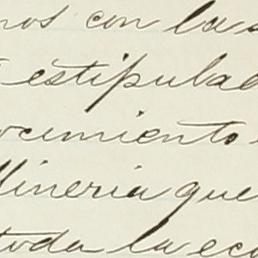 nos con las
estipulad
ocumiento
Mineria que
toda la eco